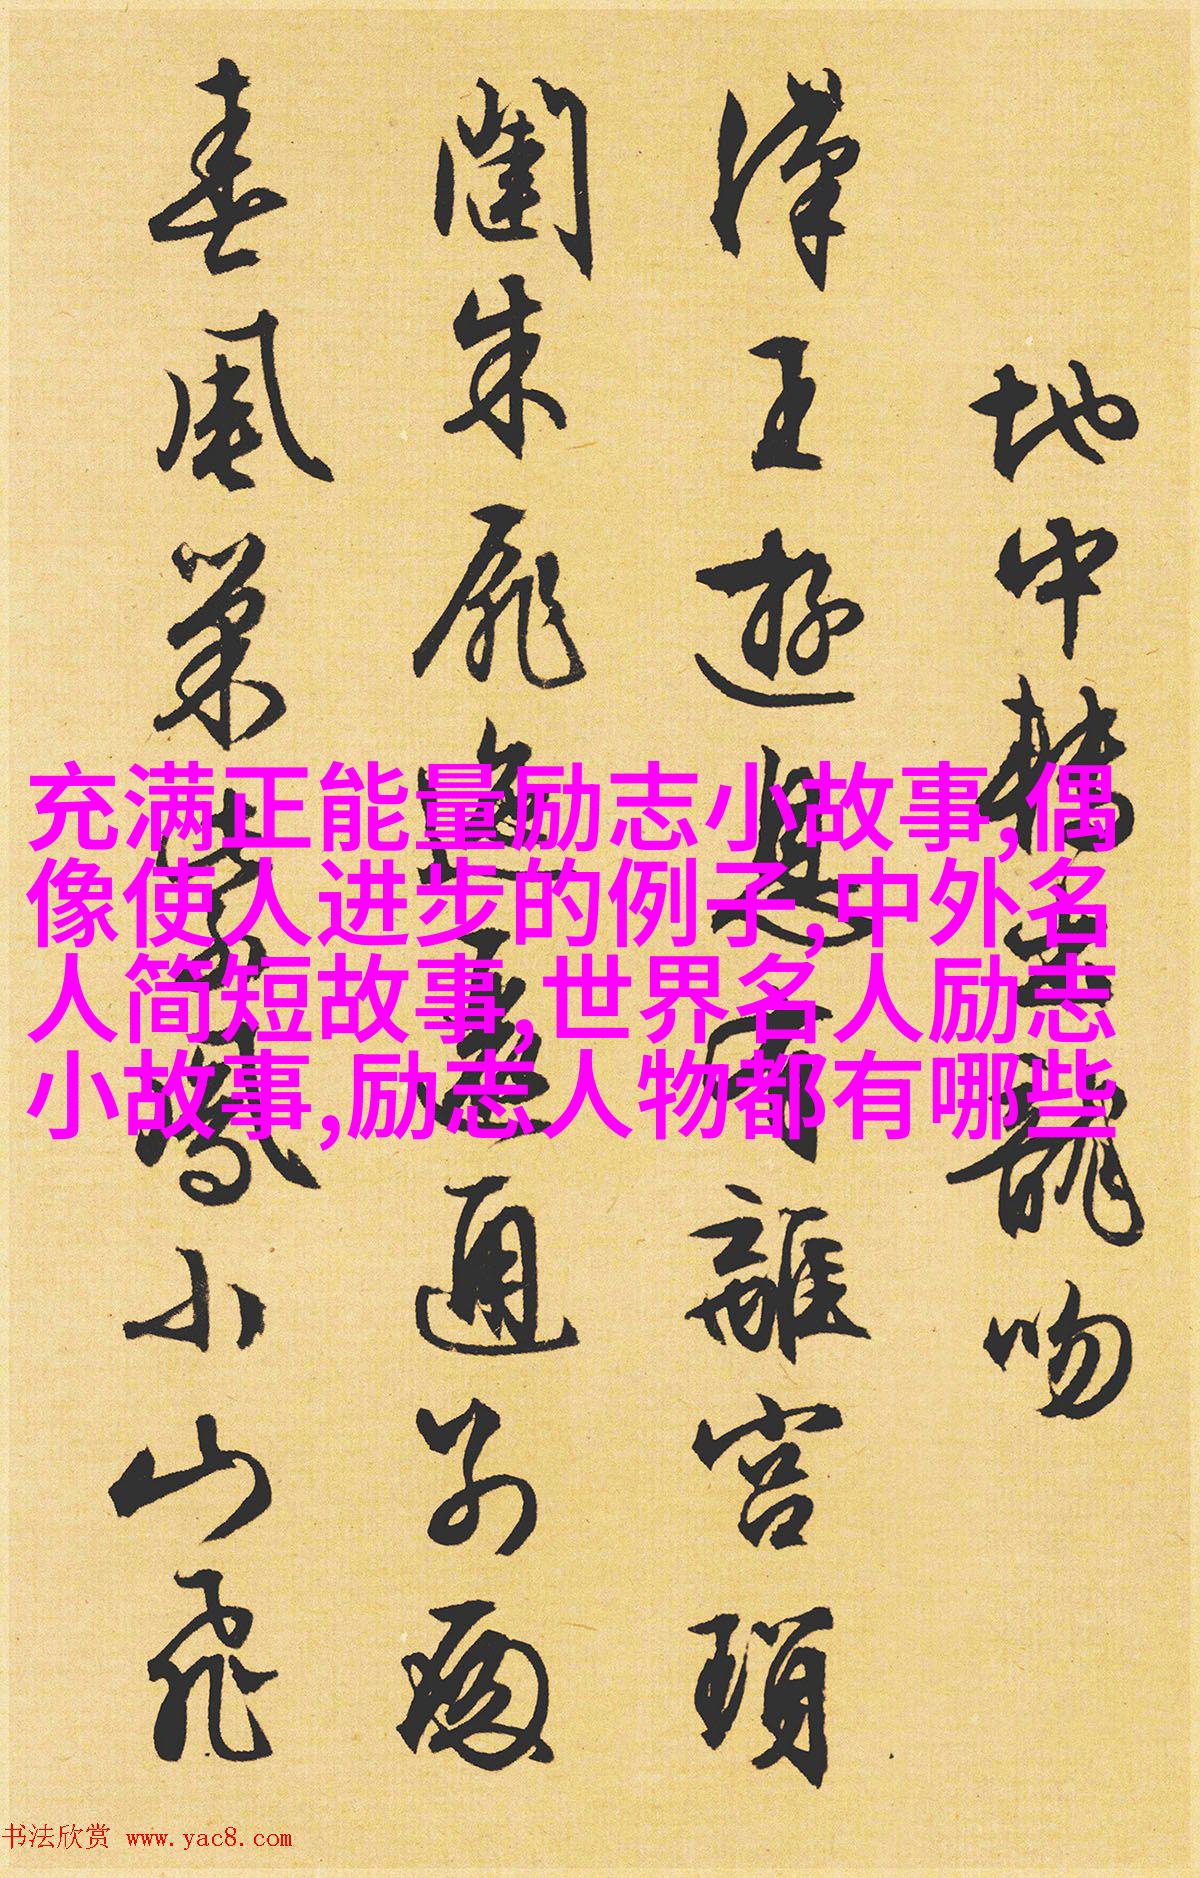 地中龍吻
漢王遊息有離宮瑣
闥朱扉迤邐通別殿
春風巢紫鳳小山飛
充满正能量励志小故事,偶
像使人进步的例子,中外名
人简短故事,世界名人励志
小故事,励志人物都有哪些
书法欣赏 www.yac8.com